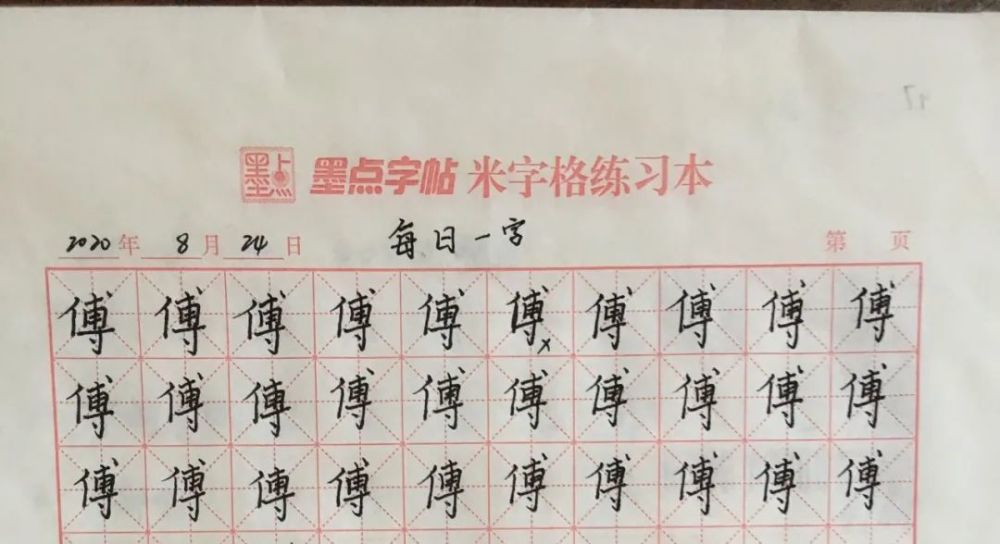 墨点 墨点字帖 米字格练习本
2020年 8月 24日 每日一字 第 页
傅 傅 傅 傅 傅 傅 傅 傅 傅 傅
傅 傅 傅 傅 傅 傅 傅 傅 傅 傅
傅 傅 傅 傅 傅 傅 傅 傅 傅 傅